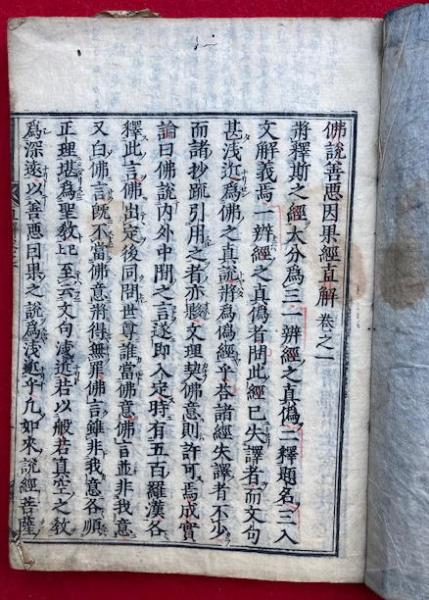 佛說善惡因果經直解 卷之一
將釋斯之經大分為三一辨經之真偽二釋題名三入
文解義焉一辨經之真偽者問此經已失譯者而文句
甚浅近為佛之真說將為偽經乎答諸經失譯者不少
而諸抄疏引用之者亦夥文理契佛意則許可焉成實
論曰佛說內外中間之言遂即入定時有五百羅漢各
釋此言佛出定後同問世尊誰當佛意佛言並非我意
又白佛言既不當佛意將得無罪佛言雖非我意各順
正理堪為聖教記至云文句浅近若以般若真空之教
為深遠以善惡因果之說為浅近乎凡如來說經菩薩